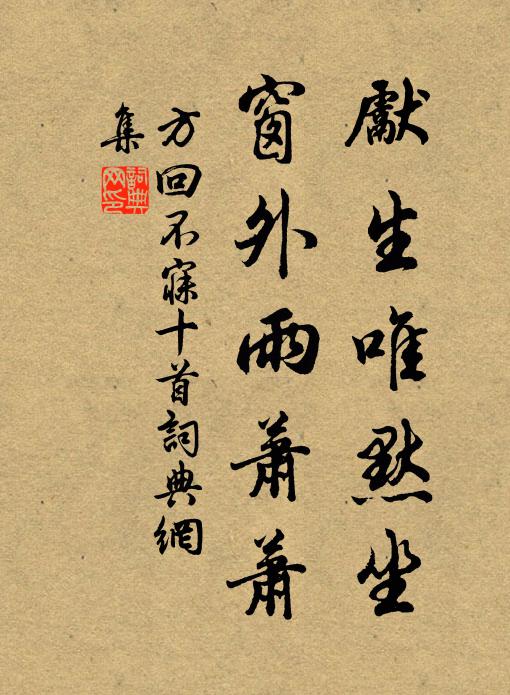 獻生唯默坐
窗外雨蕭蕭
方回不寐十首詞典網
集
詞典网印